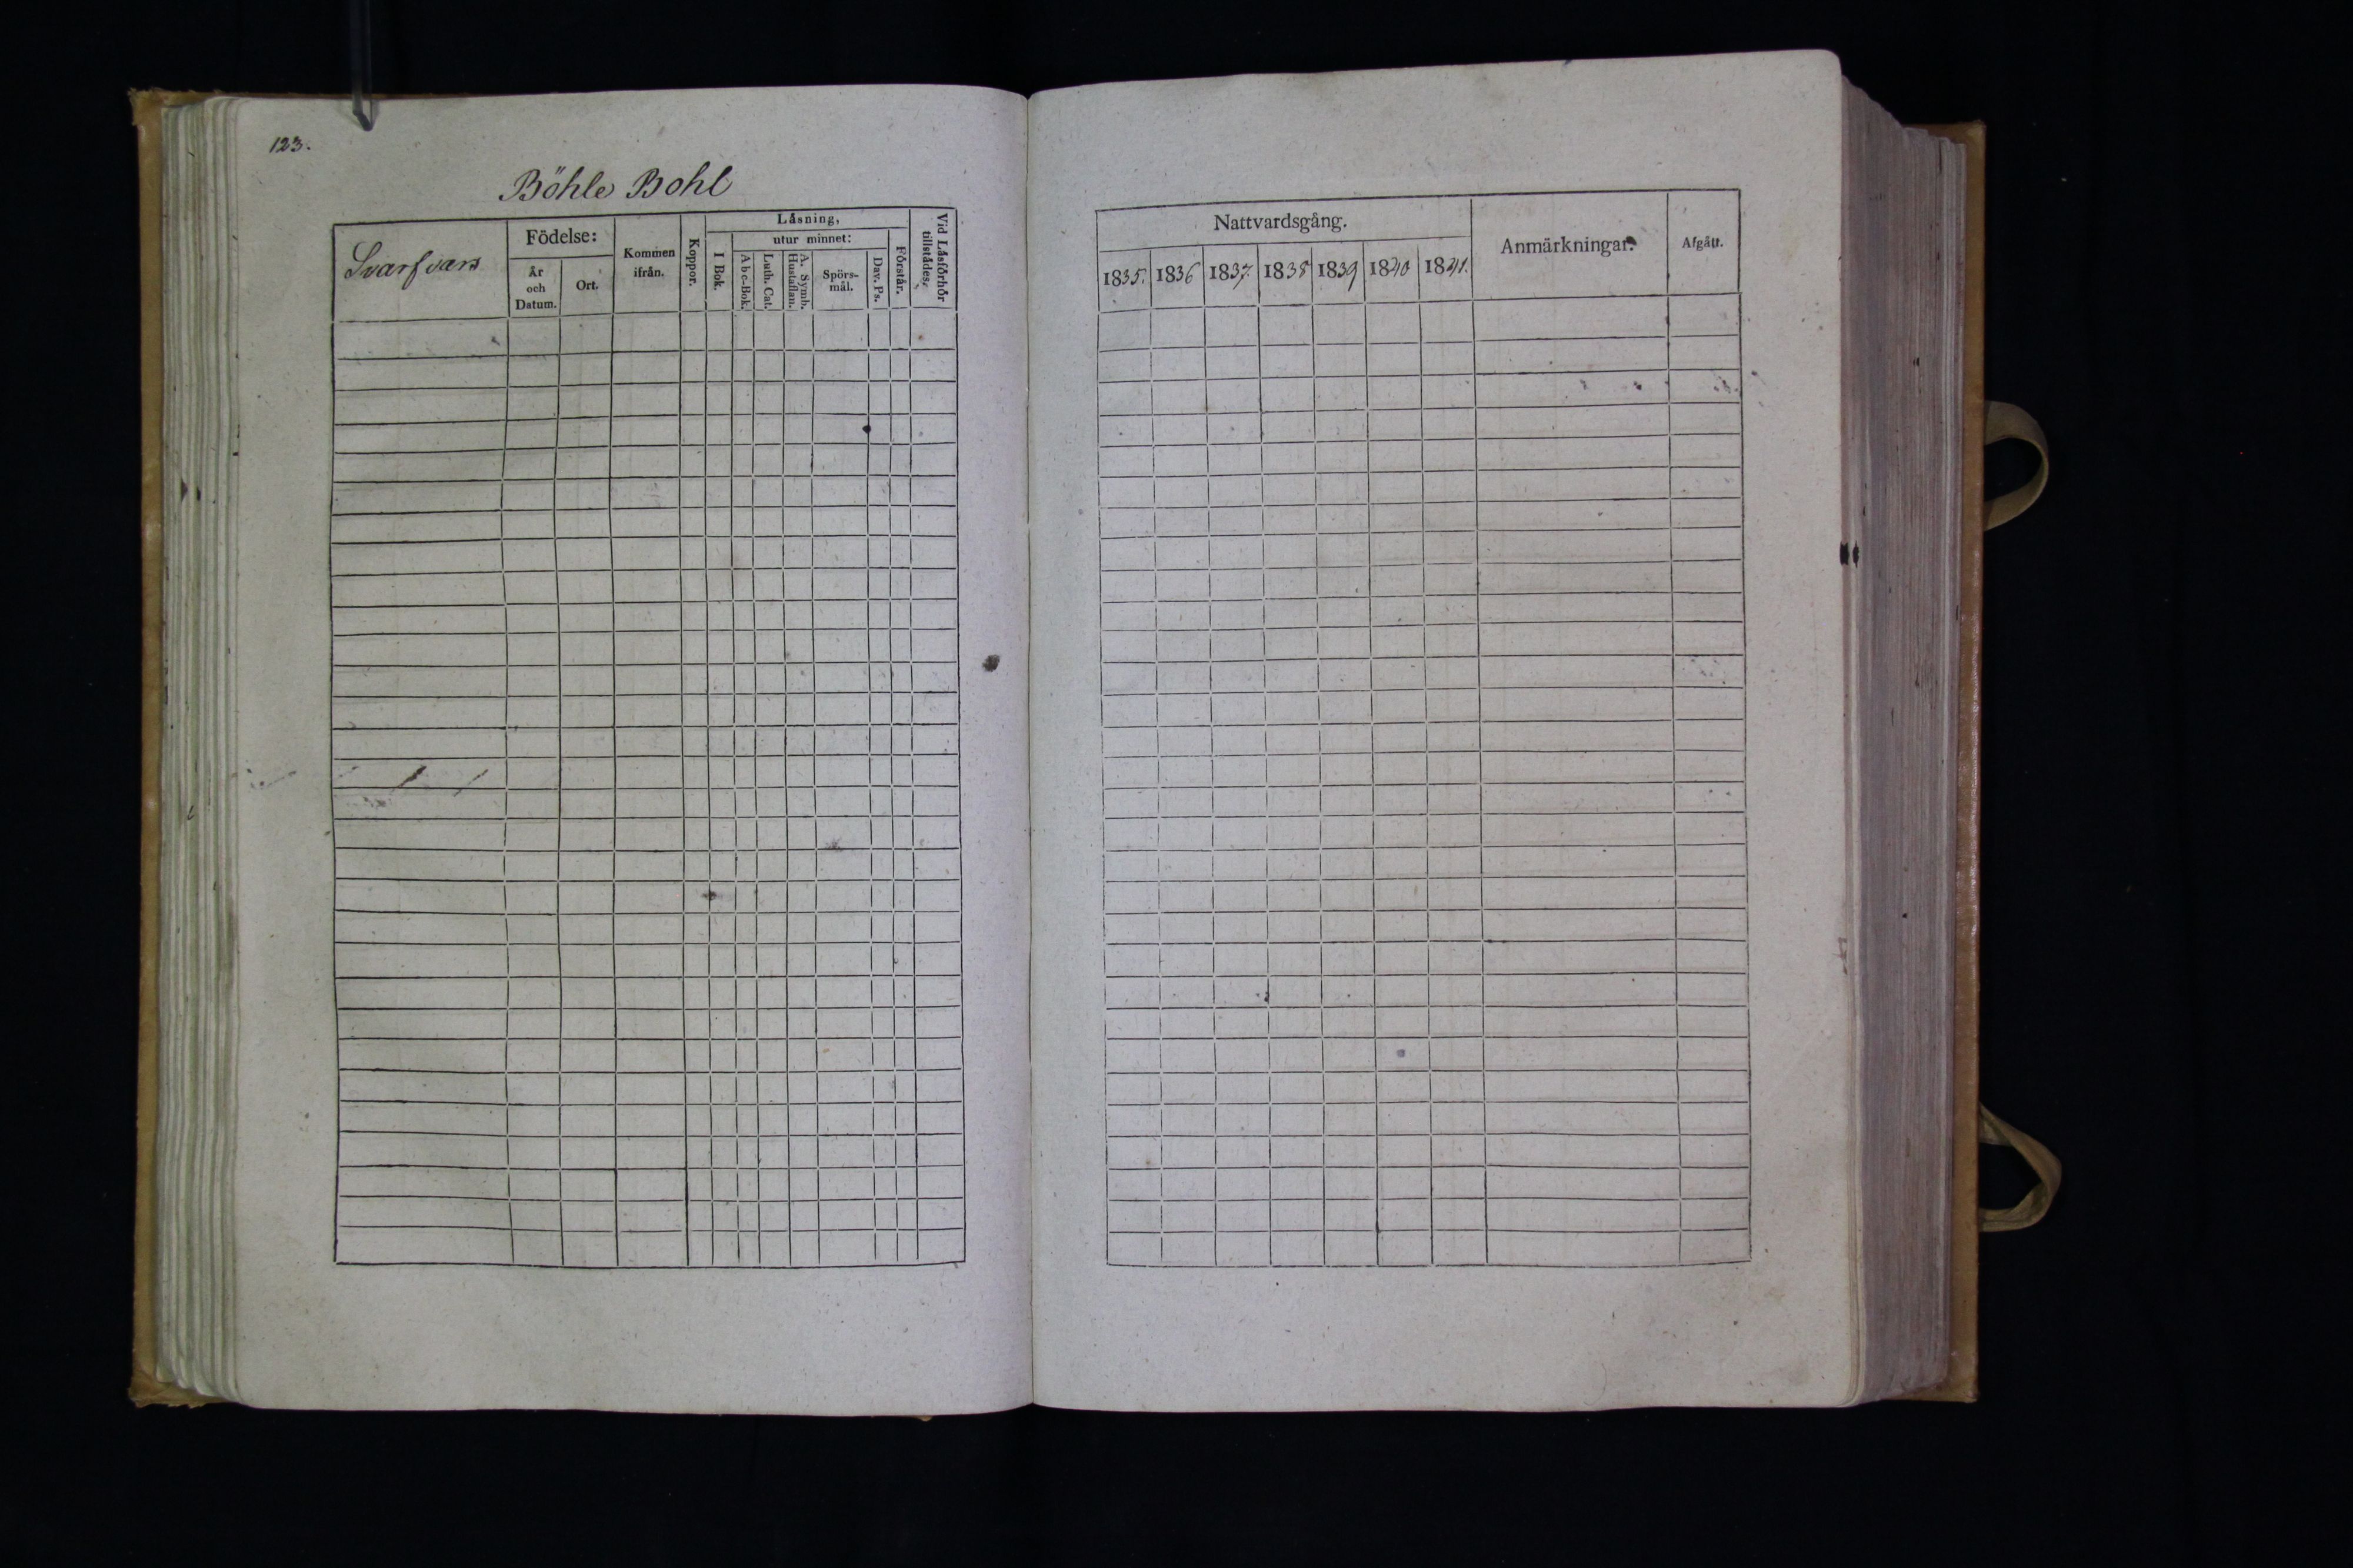 123.
Böhle Bohl
Svarfvars
Födelse:
År och Datum.
Ort.
Kommen ifrån.
Koppor.
Låsning,
I Bok.
utur minnet:
Abc-Bok.
Luth. Cat.
A. Symb. Hustaflan.
Spörs-mål.
Dav. Ps.
Förstår.
Vid Låsförhör tillstådes.
Nattvardsgång.
1835. 1836 1837. 1838 1839 1840 1841.
Anmärkningar.
Afgått.